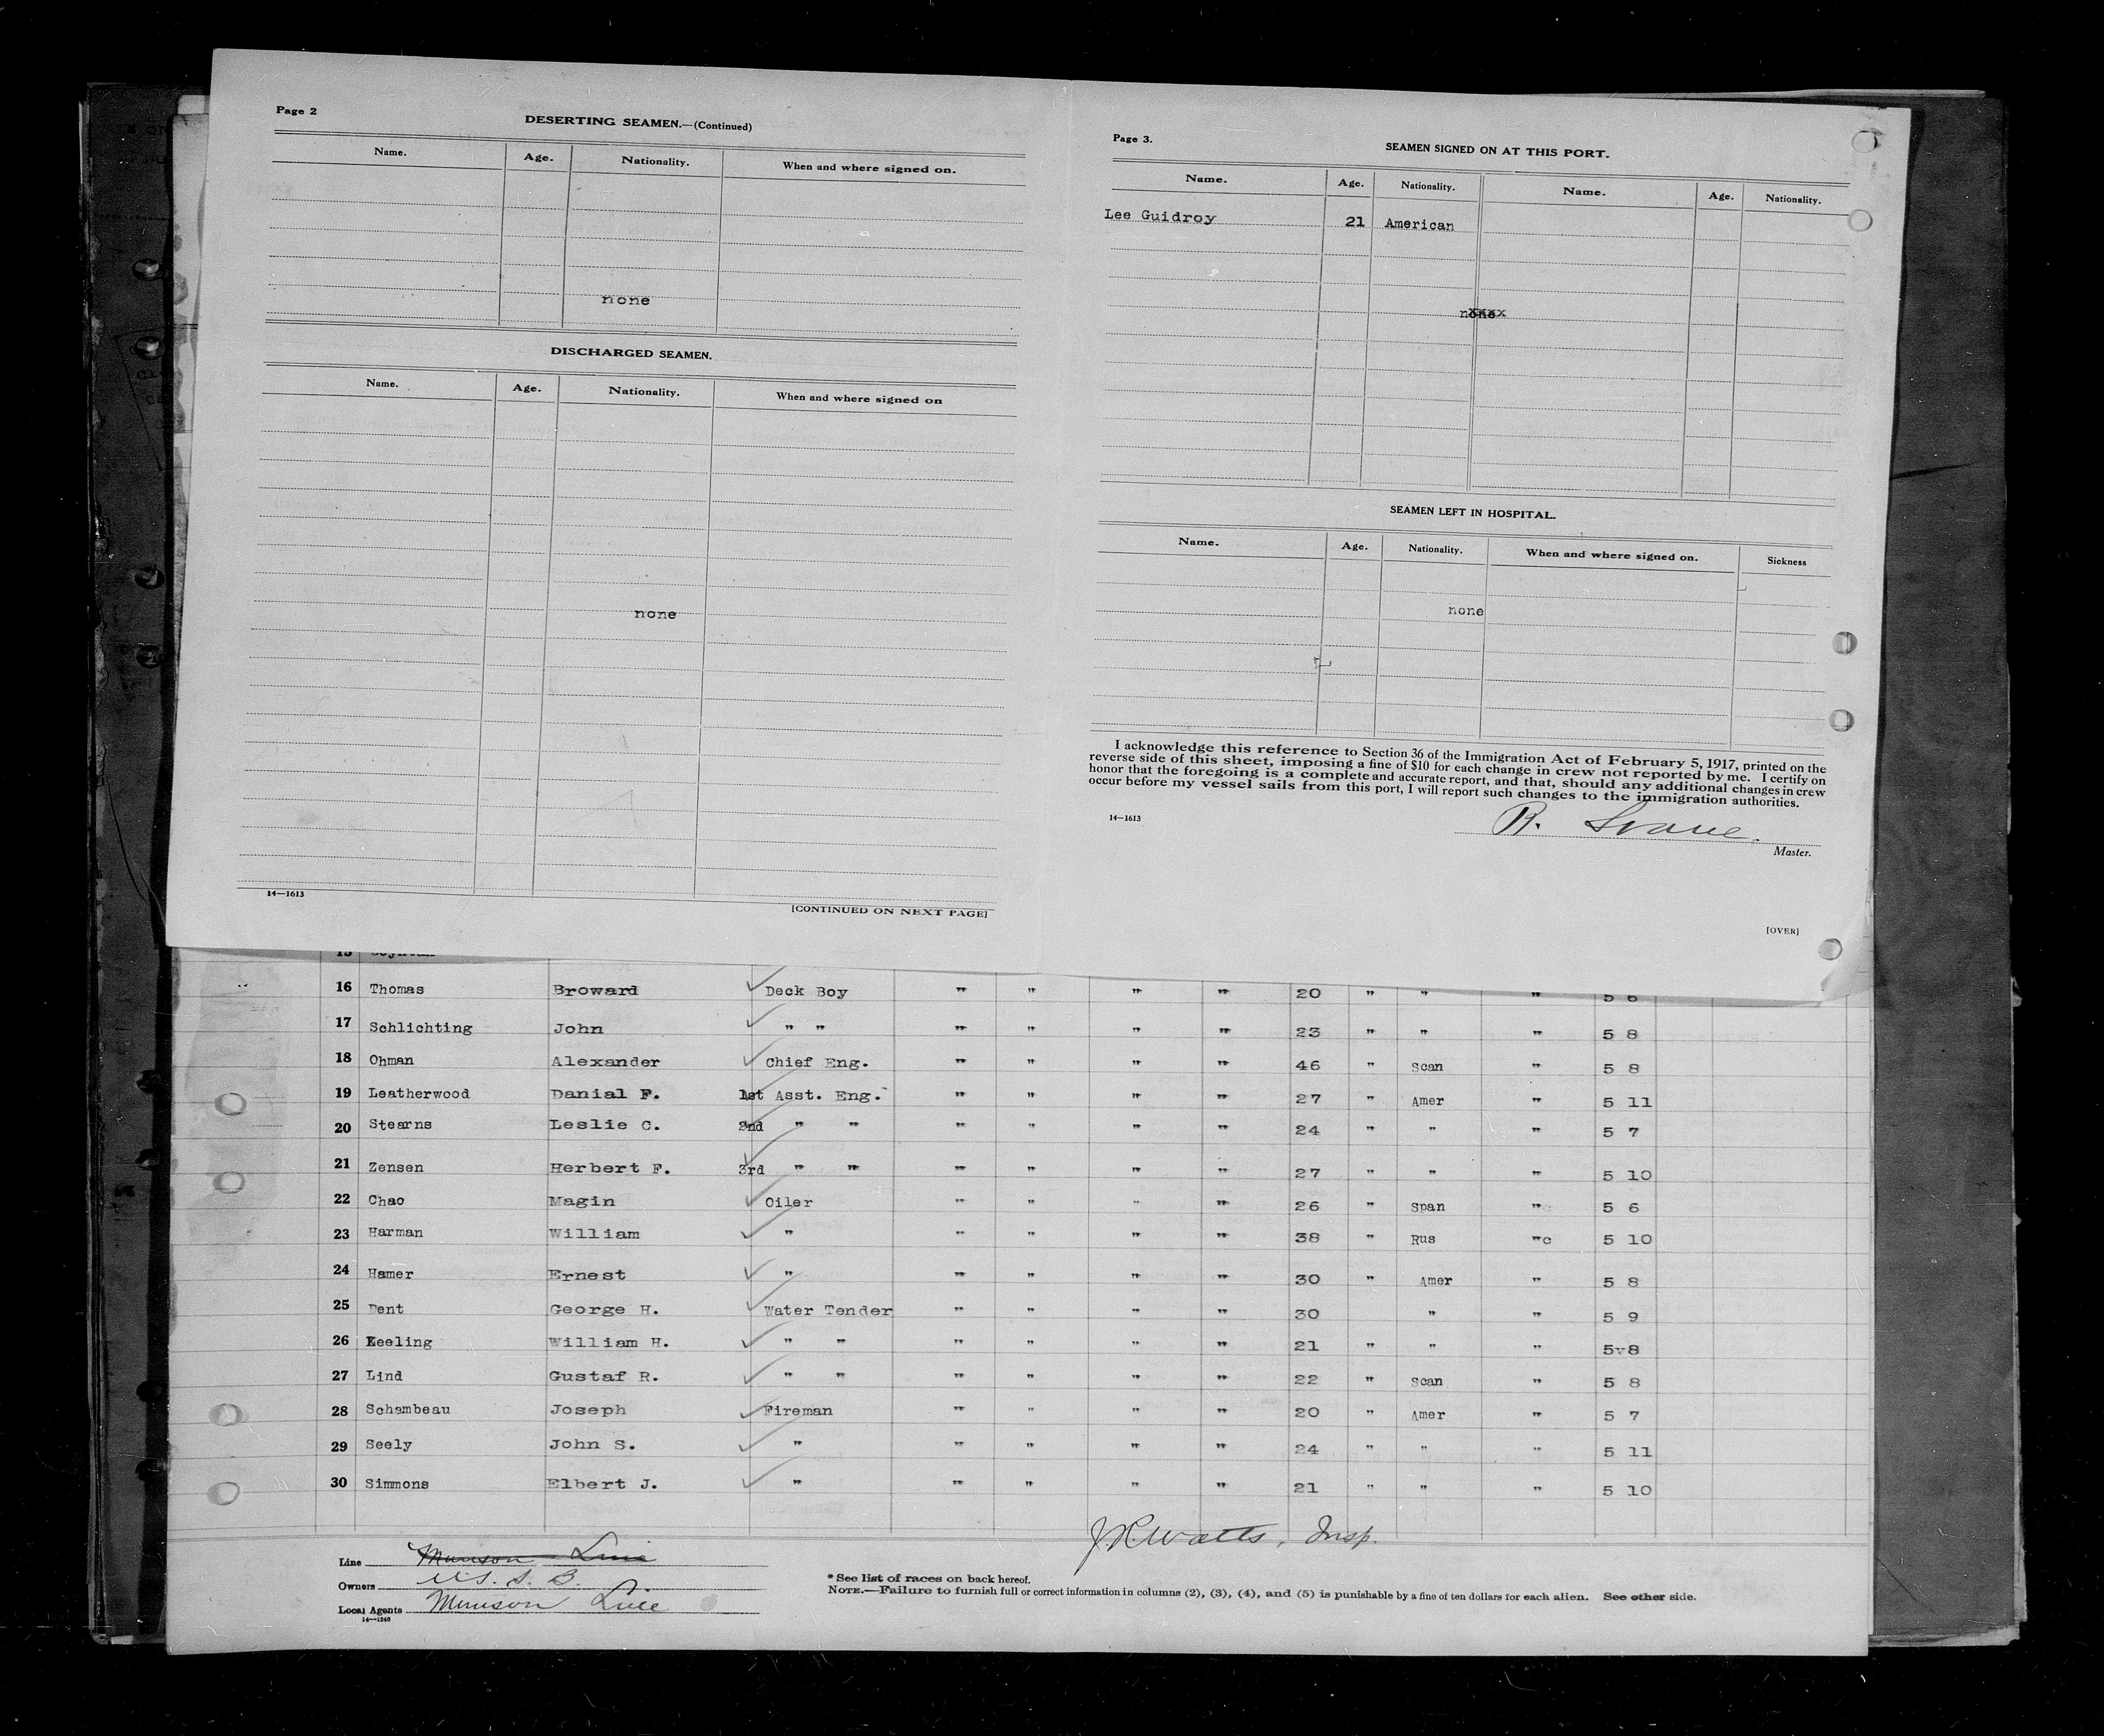 Page 2
DESERTING SEAMEN.—(Continued)
Name. Age. Nationality. When and where signed on.
none
DISCHARGED SEAMEN.
Name. Age. Nationality. When and where signed on
none
14—1613
[CONTINUED ON NEXT PAGE]
Page 3.
SEAMEN SIGNED ON AT THIS PORT.
Name. Age. Nationality. Name. Age. Nationality.
Lee Guidroy 21 American
none xxxx
SEAMEN LEFT IN HOSPITAL.
Name. Age. Nationality. When and where signed on. Sickness
none
I acknowledge this reference to Section 36 of the Immigration Act of February 5, 1917, printed on the
reverse side of this sheet, imposing a fine of $10 for each change in crew not reported by me. I certify on
honor that the foregoing is a complete and accurate report, and that, should any additional changes in crew
occur before my vessel sails from this port, I will report such changes to the immigration authorities.
14—1613
R.
Master.
[OVER]
15
16 Thomas Broward Deck Boy " " " " 20 " " " 5 6
17 Schlichting John " " " " " " 23 " " " 5 8
18 Ohman Alexander Chief Eng. " " " " 46 " Scan " 5 8
19 Leatherwood Danial F. 1st Asst. Eng. " " " " 27 " Amer " 5 11
20 Stearns Leslie C. 2nd " " " " " " 24 " " " 5 7
21 Zensen Herbert F. 3rd " " " " " " 27 " " " 5 10
22 Chao Magin Oiler " " " " 26 " Span " 5 6
23 Harman William " " " " " 38 " Rus "c 5 10
24 Hamer Ernest " " " " " 30 " Amer " 5 8
25 Dent George H. Water Tender " " " " 30 " " 5 9
26 Keeling William H. " " " " " " 21 " " " 5v8
27 Lind Gustaf R. " " " " " " 22 " Scan " 5 8
28 Schambeau Joseph Fireman " " " " 20 " Amer " 5 7
29 Seely John S. " " " " " 24 " " " 5 11
30 Simmons Elbert J. " " " " " 21 " " " 5 10
J.R. Watts, Insp.
Line Munson Line
Owners U.S. S. B.
Local Agents Munson Line
14—1240
* See list of races on back hereof.
NOTE.—Failure to furnish full or correct information in columns (2), (3), (4), and (5) is punishable by a fine of ten dollars for each alien. See other side.